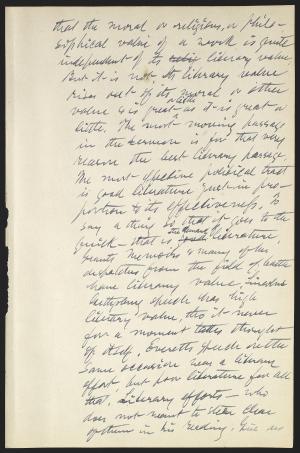 that the moral or religious, or philo-
sophical value of a work is quite
independent of its literary value.
But it is not. Its literary value
rises out of its moral or other
value & is great or little as it is great or
little. The most moving passage
in the sermon is for that very
reason the best literary passage.
The most effective political tract
is good literature just in pro-
portion to its effectiveness. To
say a thing so that it goes to the
quick — that is the literature.
Grants Memoirs & many of his
despatches from the field of battle
have literary value. Lincolns
Gettysburg speech has high
literary value, tho it never
for a moment takes thought
of itself. Everetts speech on the
same occasion was a literary
effort, but poor literature for all
that. Literary efforts — who
does not want to steer clear
of them in his reading. Give us